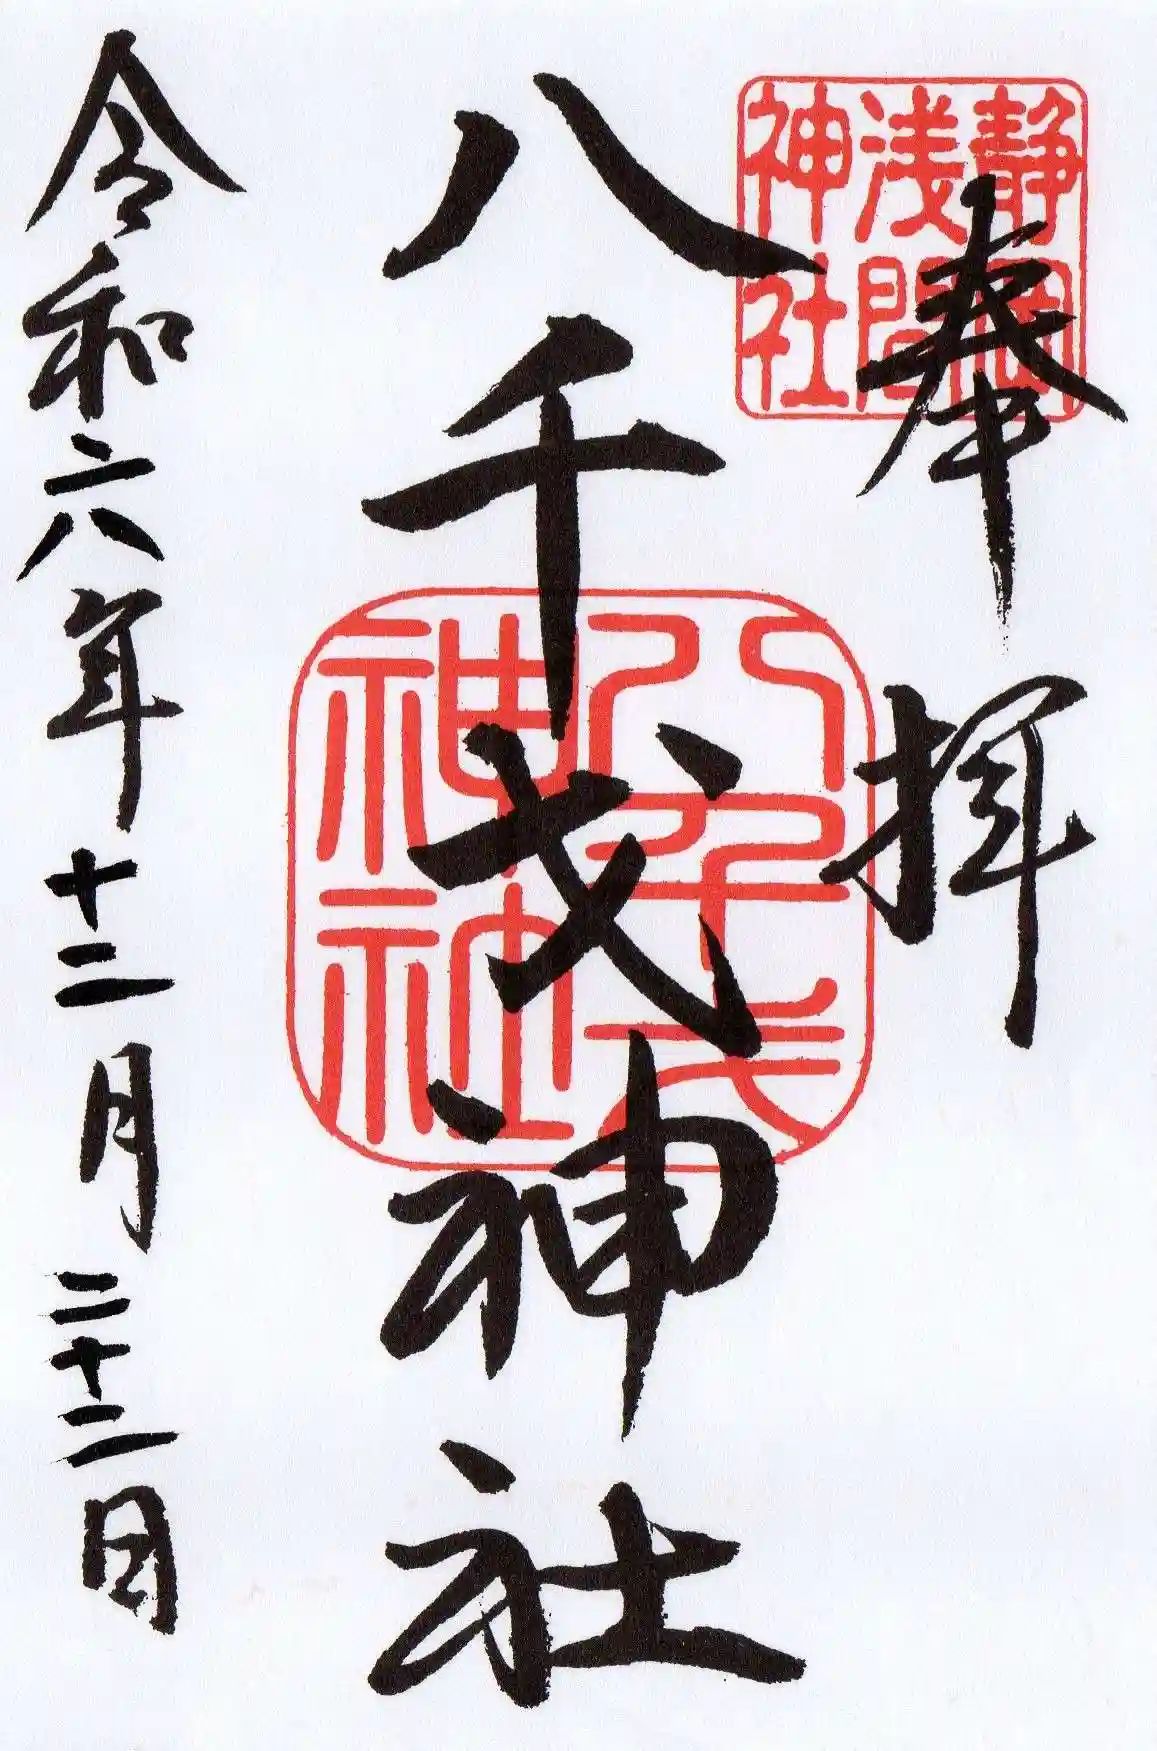 奉拝
静岡
浅間
神社
八千戈神社
八千戈
神社
令和六年十二月二十二日